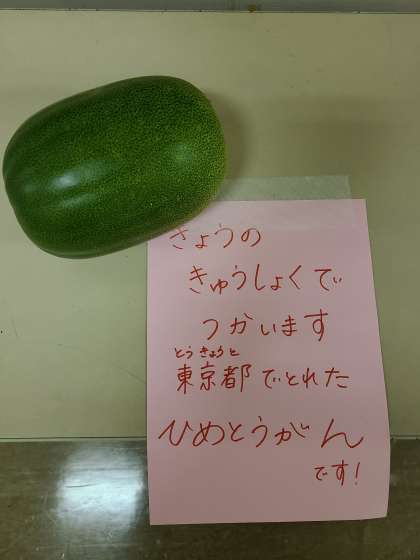 きょうの
きゅうしょくで
つかいます
とうきょうと
東京都でとれた
ひめとうがん
です!